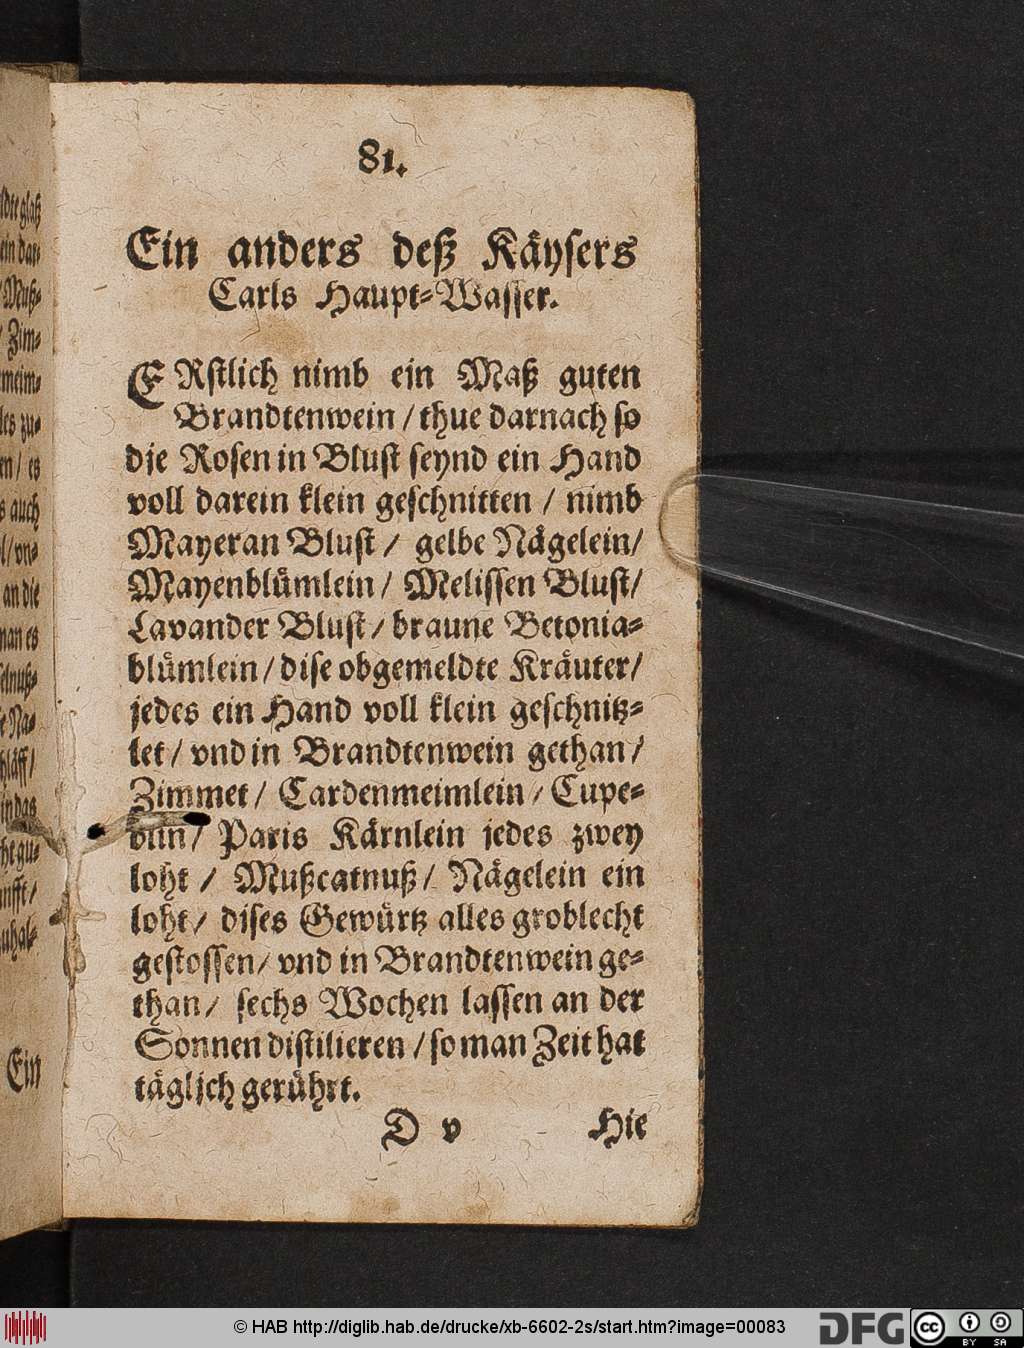 81.
Ein anders deß Käysers
Carls Haupt-Wasser.
ERstlich nimb ein Maß guten
Brandtenwein / thue darnach so
die Rosen in Blust seynd ein Hand
voll darein klein geschnitten / nimb
Mayeran Blust / gelbe Nägelein/
Mayenblümlein / Melissen Blust/
Lavander Blust / braune Betonia-
blümlein / dise obgemeldte Kräuter/
jedes ein Hand voll klein geschnitz-
let / vnd in Brandtenwein gethan /
Zimmet / Cardenmeimlein / Cupe-
blin / Paris Kärnlein jedes zwey
loht / Mußcatnuß / Nägelein ein
loht / dises Gewürtz alles groblecht
gestossen / vnd in Brandtenwein ge-
than / sechs Wochen lassen an der
Sonnen distilieren / so man Zeit hat
täglich gerührt.
D v Hie
Ein
© HAB http://diglib.hab.de/drucke/xb-6602-2s/start.htm?image=00083
DFG
cc BY SA